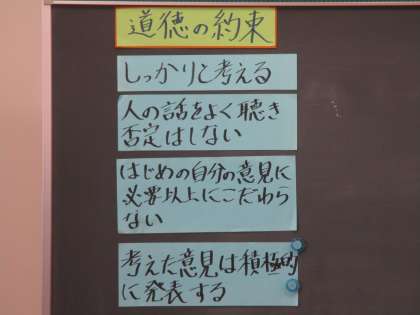 道徳の約束
しっかりと考える
人の話をよく聴き
否定はしない
はじめの自分の意見に
必要以上にこだわら
ない
考えた意見は積極的
に発表する